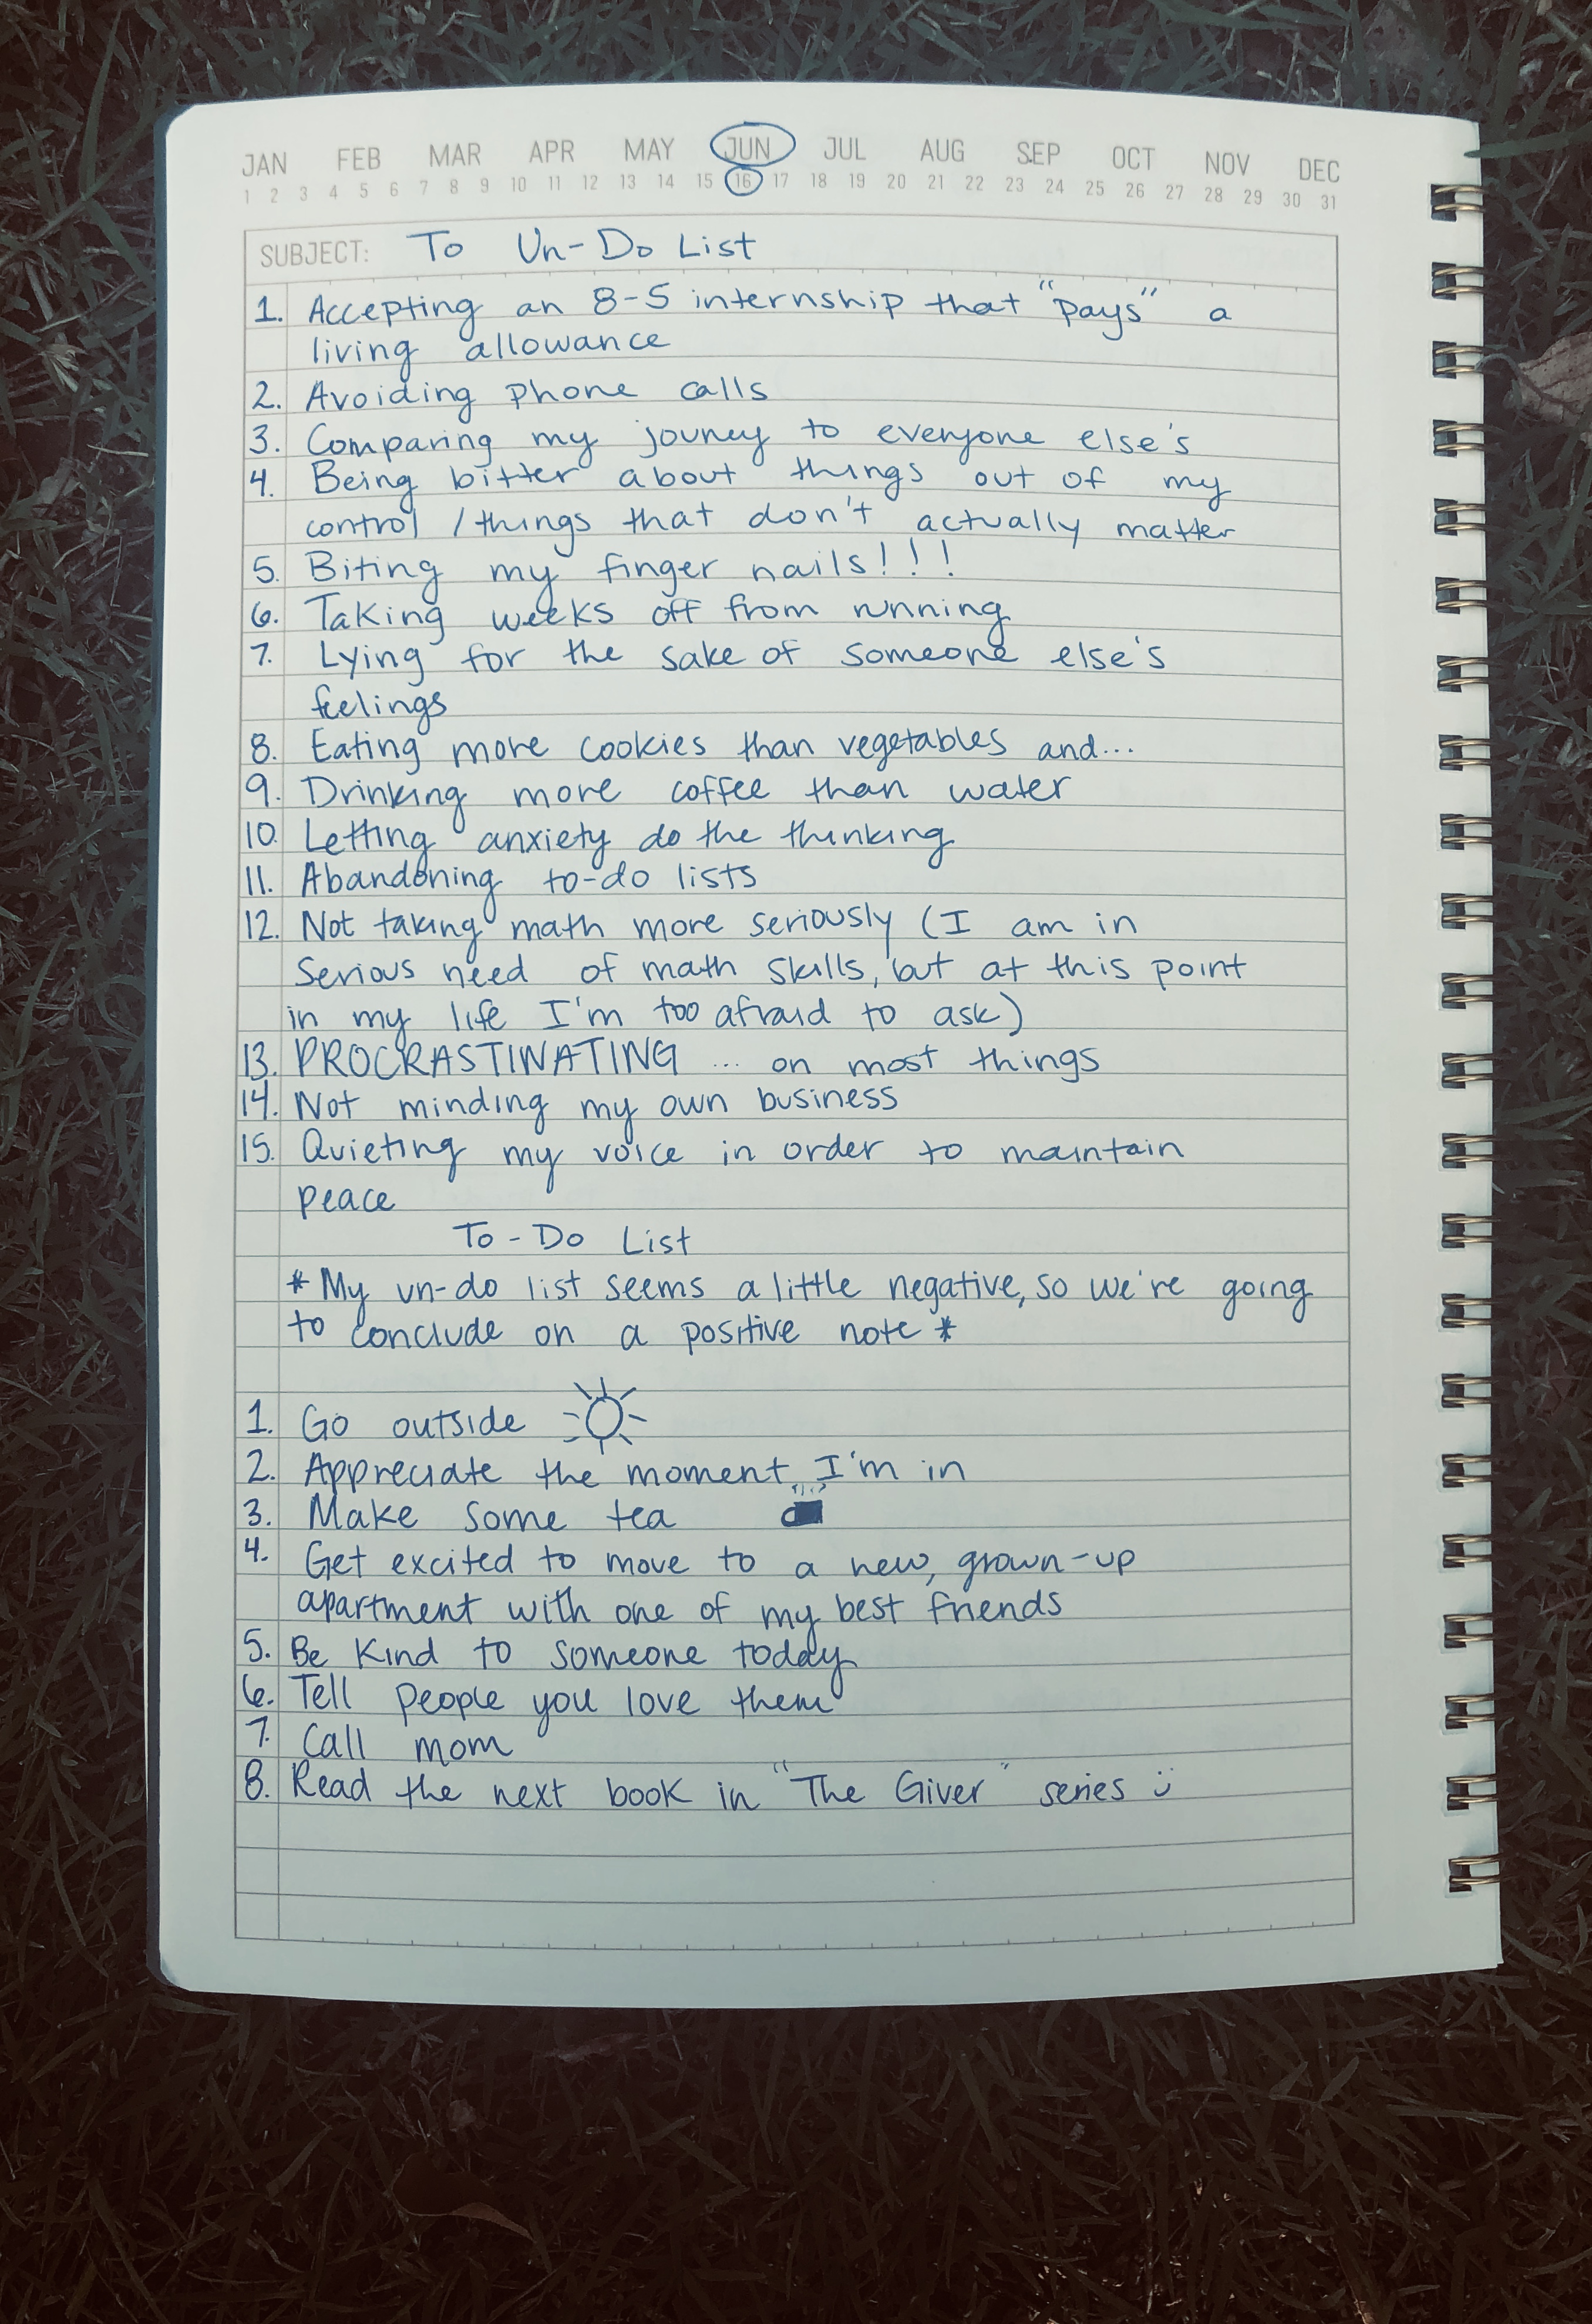 JAN FEB MAR APR MAY JUN JUL AUG SEP OCT NOV DEC
1 2 3 4 5 6 7 8 9 10 11 12 13 14 15 16 17 18 19 20 21 22 23 24 25 26 27 28 29 30 31
SUBJECT: To Un-Do List
1. Accepting an 8-5 internship that "pays" a
living allowance
2. Avoiding phone calls
3. Comparing my jouney to everyone else's
4. Being bitter about things out of my
control / things that don't actually matter
5. Biting my finger nails!!!
6. Taking weeks off from running
7. Lying for the sake of someone else's
feelings
8. Eating more cookies than vegetables and...
9. Drinking more coffee than water
10. Letting anxiety do the thinking
11. Abandoning to-do lists
12. Not taking math more seriously (I am in
serious need of math skills, but at this point
in my life I'm too afraid to ask)
13. PROCRASTINATING ... on most things
14. Not minding my own business
15. Quieting my voice in order to maintain
peace
To-Do List
*My un-do list seems a little negative, so we're going
to conclude on a positive note*
1. Go outside
2. Appreciate the moment I'm in
3. Make some tea
4. Get excited to move to a new, grown-up
apartment with one of my best friends
5. Be kind to someone today
6. Tell people you love them
7. Call mom
8. Read the next book in "The Giver" series :)